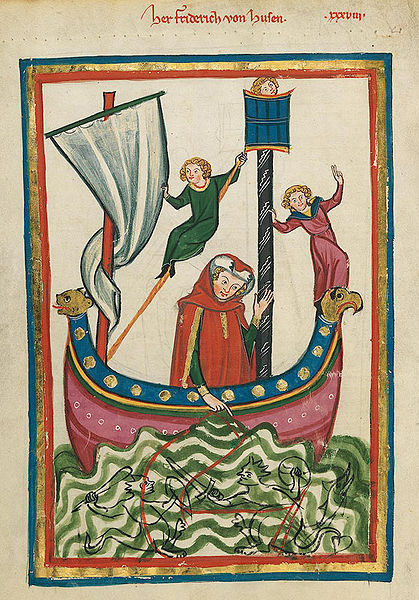 Her Friderich von Husen.
xxxviii